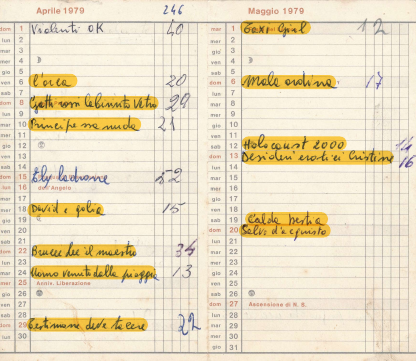 Aprile 1979 246
dom 1 Violenti OK 40
lun 2
mar 3
mer 4
gio 5
ven 6 L'orca 20
sab 7
dom 8 Gatti rossi labirinto Vetro 29
lun 9
mar 10 Principessa nuda 21
mer 11
gio 12
ven 13
sab 14
dom 15 ladrone 52
lun 16 dell'Angelo
mar 17
mer 18 David e golia 15
gio 19
ven 20
sab 21
dom 22 Bruce Lee il maestro 34
lun 23
mar 24 Uomo venuto dalla pioggia 13
mer 25 Anniv. Liberazione
gio 26
ven 27
sab 28
dom 29 Testimone deve tacere 22
lun 30
Maggio 1979
mar 1 Taxi Girl 12
mer 2
gio 3
ven 4
sab 5
dom 6 Mala ordina 17
lun 7
mar 8
mer 9
gio 10
ven 11
sab 12 Holocaust 2000 14
dom 13 Desideri erotici Cristine 16
lun 14
mar 15
mer 16
gio 17
ven 18
sab 19 Calda bestia
dom 20 Salvo d'acquisto
lun 21
mar 22
mer 23
gio 24
ven 25
sab 26
dom 27 Ascensione di N. S.
lun 28
mar 29
mer 30
gio 31